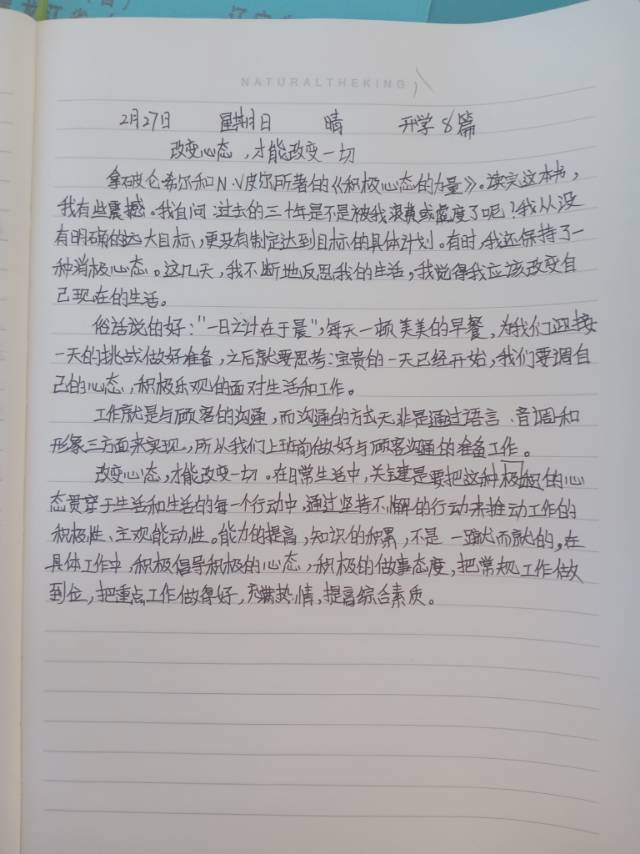 NATURALTHEKING
2月27日 星期日 晴 开学8篇
改变心态,才能改变一切
拿破仑·希尔和N·V皮尔所著的《积极心态的力量》。读完这本书,
我有些震撼。我自问:过去的三十年是不是被我浪费或虚度了呢?我从没
有明确的远大目标,更没有制定达到目标的具体计划。有时,我还保持了一
种消极心态。这几天,我不断地反思我的生活,我觉得我应该改变自
己现在的生活。
俗话说的好:"一日之计在于晨",每天一顿美美的早餐,为我们迎接
一天的挑战做好准备,之后就要思考:宝贵的一天已经开始,我们要调自
己的心态,积极乐观的面对生活和工作。
工作就是与顾客的沟通,而沟通的方式无非是通过语言、音调和
形象三方面来实现,所从我们上班前做好与顾客沟通的准备工作。
改变心态,才能改变一切。在日常生活中,关键是要把这种积极的心
态贯穿于生活和生活的每一个行动中,通过坚持不懈的行动来推动工作的
积极性、主观能动性。能力的提高,知识的积累,不是一蹴而就的,在
具体工作中,积极倡导积极的心态,积极的做事态度,把常规工作做
到位,把重点工作做得好,充满热情,提高综合素质。